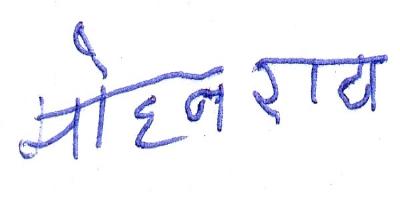 मोहन राय